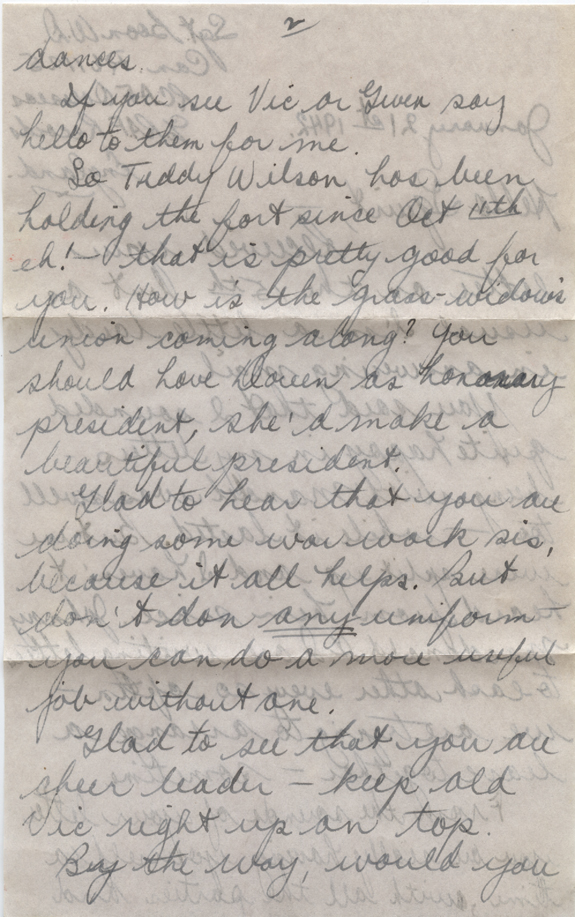 2
dances.
If you see Vic or Gwen say
hello to them for me.
So Teddy Wilson has been
holding the fort since Oct 11th
eh! - that is pretty good for
you. How is the grass-widow's
union coming along? You
should have as honorary
president, she'd make a
beautiful president.
Glad to hear that you are
doing some war work sis,
because it all helps. But
don't don any uniform -
you can do a more useful
job without one.
Glad to see that you are
sheer leader - keep old
Vic right up on top.
By the way, would you